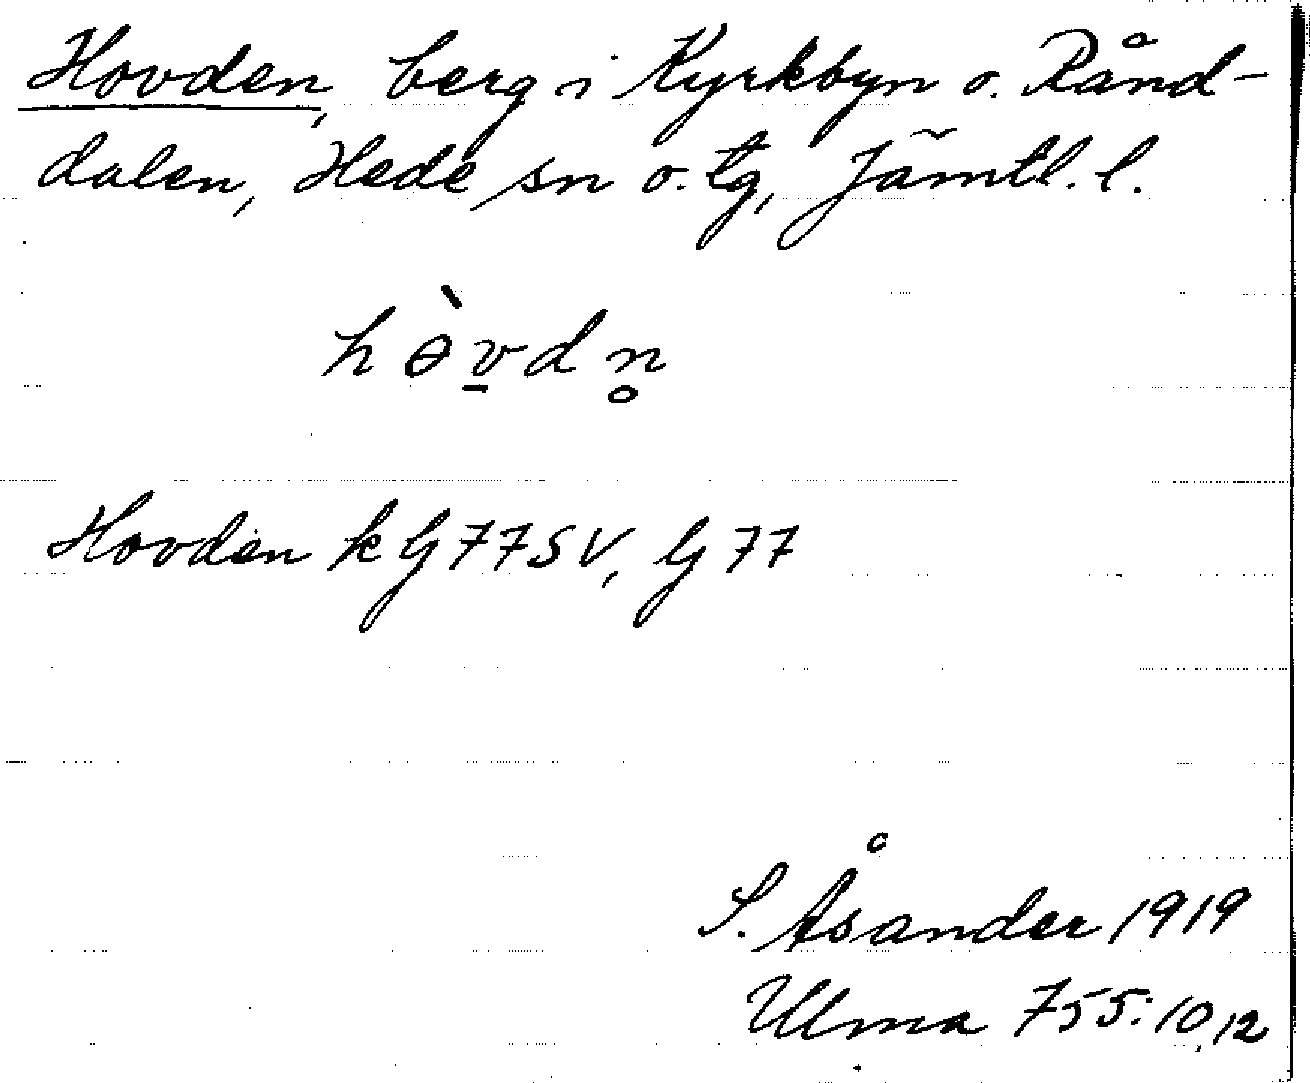 Hovden, berg i Kyrkbyn o. Rånd-
dalen, Hede sn o. tg, Jämtl. l.
hɵ̀v̱dn̥
Hovden k G77SV, G77
S. Åsander 1919
Ulma 755:10,12